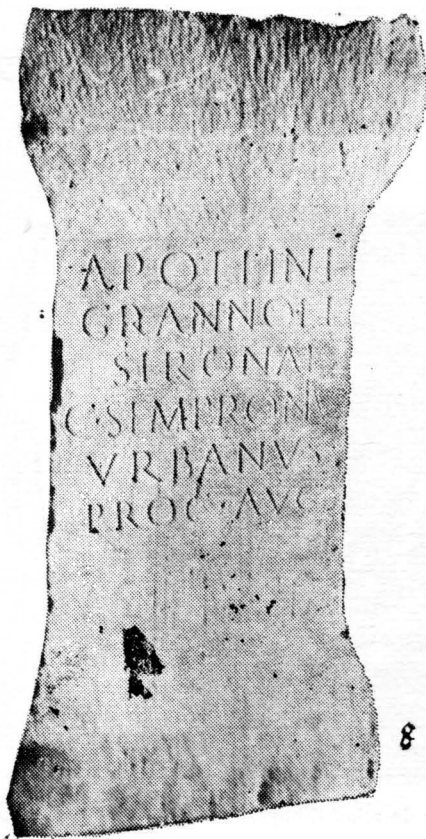 APOLLINI
GRANNO·ET
SIRONAE
C·SEMPRONIVS
VRBANVS
PROC·AVG
8